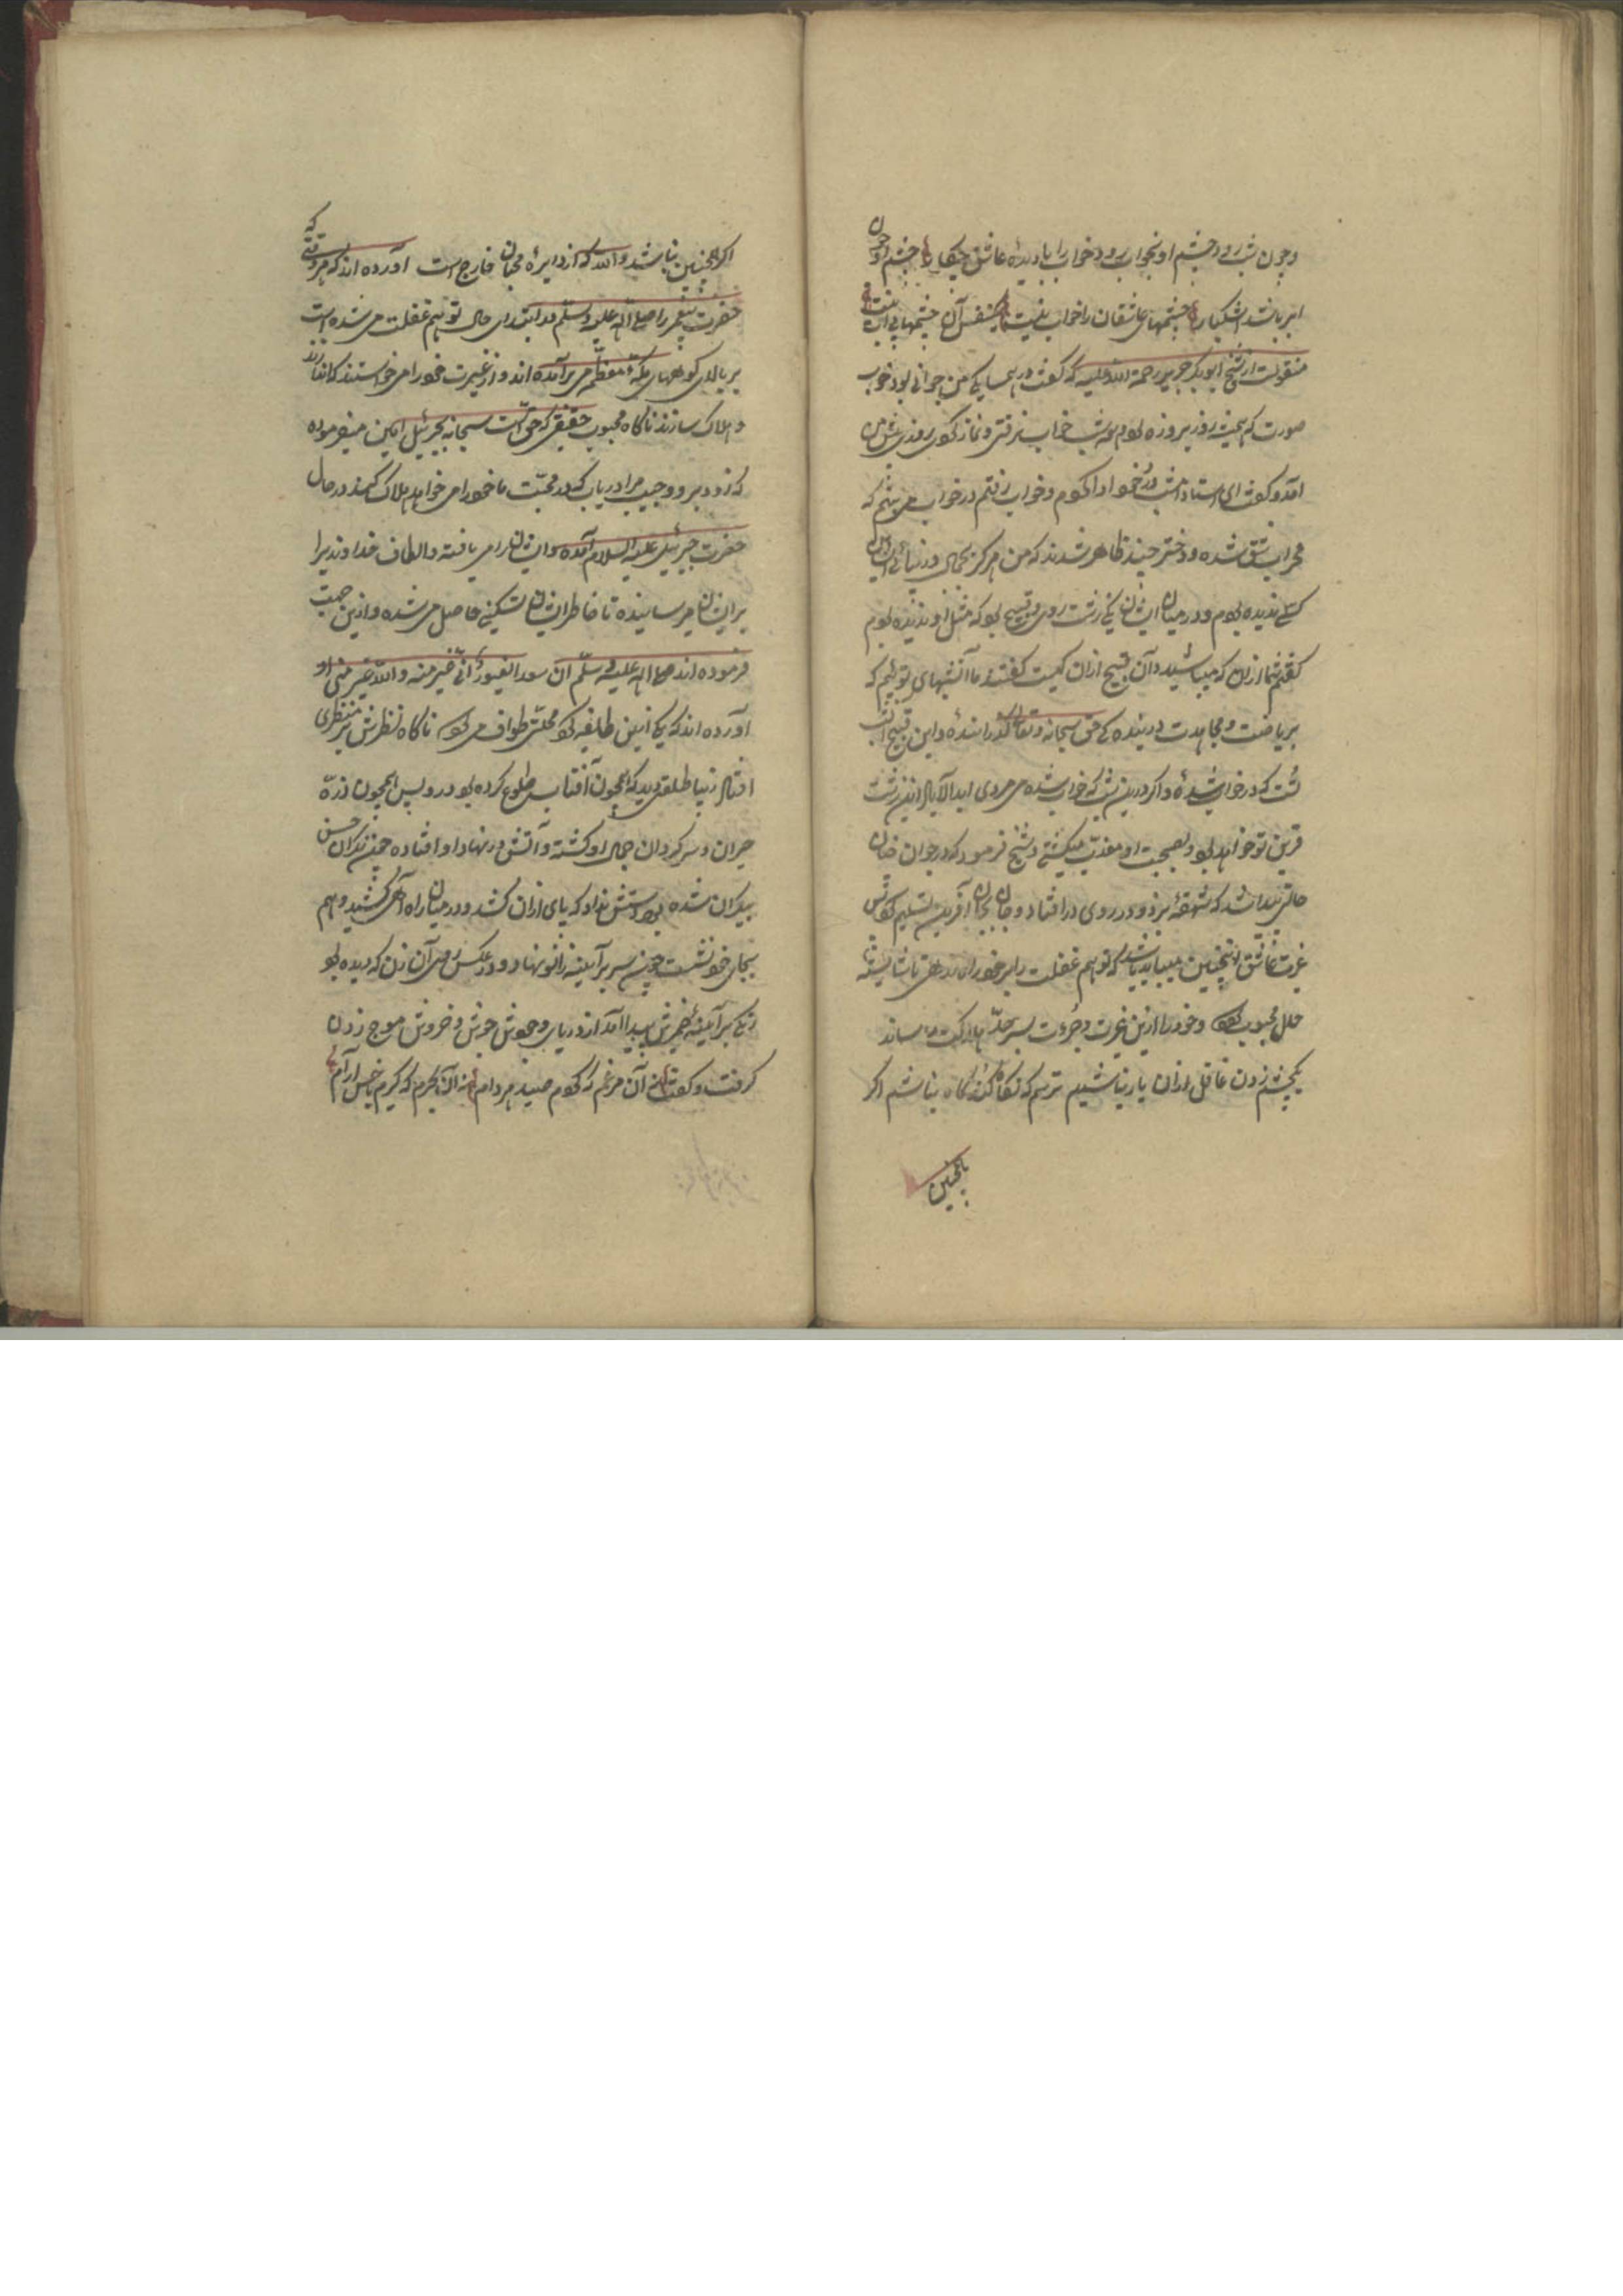 وچون شب رود چشم او بخواب رود خواب را با دیدهٔ عاشق چکار چشم او چون
ابر باشد اشکبار چشمهای عاشقان را خواب نیست یکنفس آن چشمها بی آب نیست
منقولست از شیخ ابوبکر رحمة الله علیه که گفت در همسایکی من جوانی بود خوب
صورت که همیشه روز بروزه بودی و همه شب خواب نرفتی و نماز کردی روزی پیش من
آمد و گفت ای استاد امشب ورد خود ادا کردم و خواب رفتم در خواب می بینم که
محراب شق شده و دختر چند ظاهر شدند که من هرکز بجمال در دنیا
کسی ندیده بودم و در میان ایشان یکی زشت روی و قبیح بود که مثل او ندیده بودم
گفتم شما ازان که میباشید و آن قبیح ازان کیست گفتند ما آن شبهای توئیم که
بریاضت و مجاهدت در بندهٔ حق سبحانه وتعالی گذرانندهٔ و این قبیح آن شب
تست که در خواب شدهٔ و اکر درین شب که خواب شده می مردی ابد الآباد این زشت
قرین تو خواهد بود و بصحبت او معذب میکشتی و شیخ فرمود که در جوان چنان
حالتی پیدا شد که شهقهٔ بزد و در روی در افتاد و جان بجان آفرین تسلیم کرد پس
غیرت عاشق اینچنین میباید باشد که توهم غفلت را بر خود راه ندهد تا شایستهٔ
محبوب کردد و خود را ازین غیرت و جرءت بسر حد هلاکت رساند
یکچشم زدن غافل ازان یار نباشیم ترسم که نکاه کند آکاه نباشم اکر
باینچنین
اکر اینچنین نباشد والله که از دایرهٔ محبان خارج است آورده اند که هر وقتی که
حضرت پیغمبر را صلی الله علیه وسلم در ابتدای حال توهم غفلت می شده است
بر بالای کوههای مکهٔ معظمه می برآمده اند و از غیرت خود را می خواستند که اندازند
و هلاک سازند ناکاه محبوب حقیقی که حق است سبحانه بجبرئیل امین میفرموده
که زود برو و حبیب مرا دریاب که در محبت ما خود را می خواهد هلاک کند در حال
حضرت جبرئیل علیه السلام آمده ایشان را می یافته و الطاف خداوندی را
بر ایشان میرسانیده تا خاطر ایشان را تسکینی حاصل می شده و ازین جهت
فرموده اند صلی الله علیه وسلم ان سعد الغیور انی غیر منه والله غیر منی او
آورده اند که یکی ازین طایفه کرد محلتی طواف می کرد ناکاه نظرش بر منظری
افتاد زیبا طلعتی دید که همچون آفتاب طلوع کرده بود و پس همچون ذره
حیران و سرکردان جمال او کشته و آتش در نهاد او افتاده چنین نکران حسن
بیکران شده بود دستش نداد که پای ازان کشد و در میان راه آهی کشید و هم
بجای خود نشست چون سر بر آئینه زانو نهاد و در عکس روی آن زن که دیده بود
رنکی بر آئینهٔ ضمیرش پیدا آمد از دریای وجودش جوش و خروش موج زدن
کرفت و کفت آن مرغم که کردم صید هر دام نه آن که کیرم با خس آرام